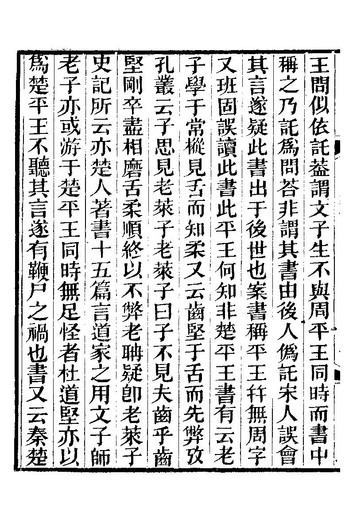 王問似依託葢謂文子生不與周平王同時而書中
稱之乃託爲問荅非謂其書由後人僞託宋人誤會
其言遂疑此書出于後世也案書稱平王幷無周字
又班固誤讀此書此平王何知非楚平王書有云老
子學于常樅見舌而知柔又云齒堅于舌而先弊攷
孔叢云子思見老萊子老萊子曰子不見夫齒乎齒
堅剛卒盡相磨舌柔順終以不弊老聃疑卽老萊子
史記所云亦楚人著書十五篇言道家之用文子師
老子亦或游于楚平王同時無足怪者杜道堅亦以
爲楚平王不聽其言遂有鞭尸之禍也書又云秦楚